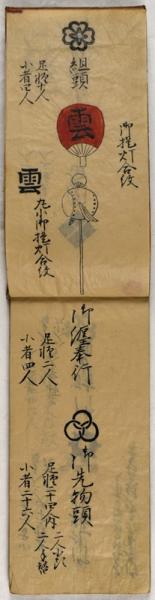 御提灯合紋
組頭
足軽十人
小者四人
雲
雲
丸小御提灯合紋
御纏奉行
足軽二人
小者四人
御先物頭
足軽二十四人内
二人小頭
二人手替
小者二十六人